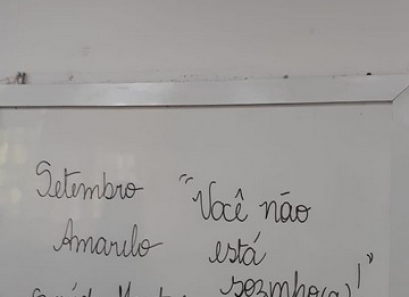 Setembro
Amarelo
"Você não
está
sozinho(a)!"